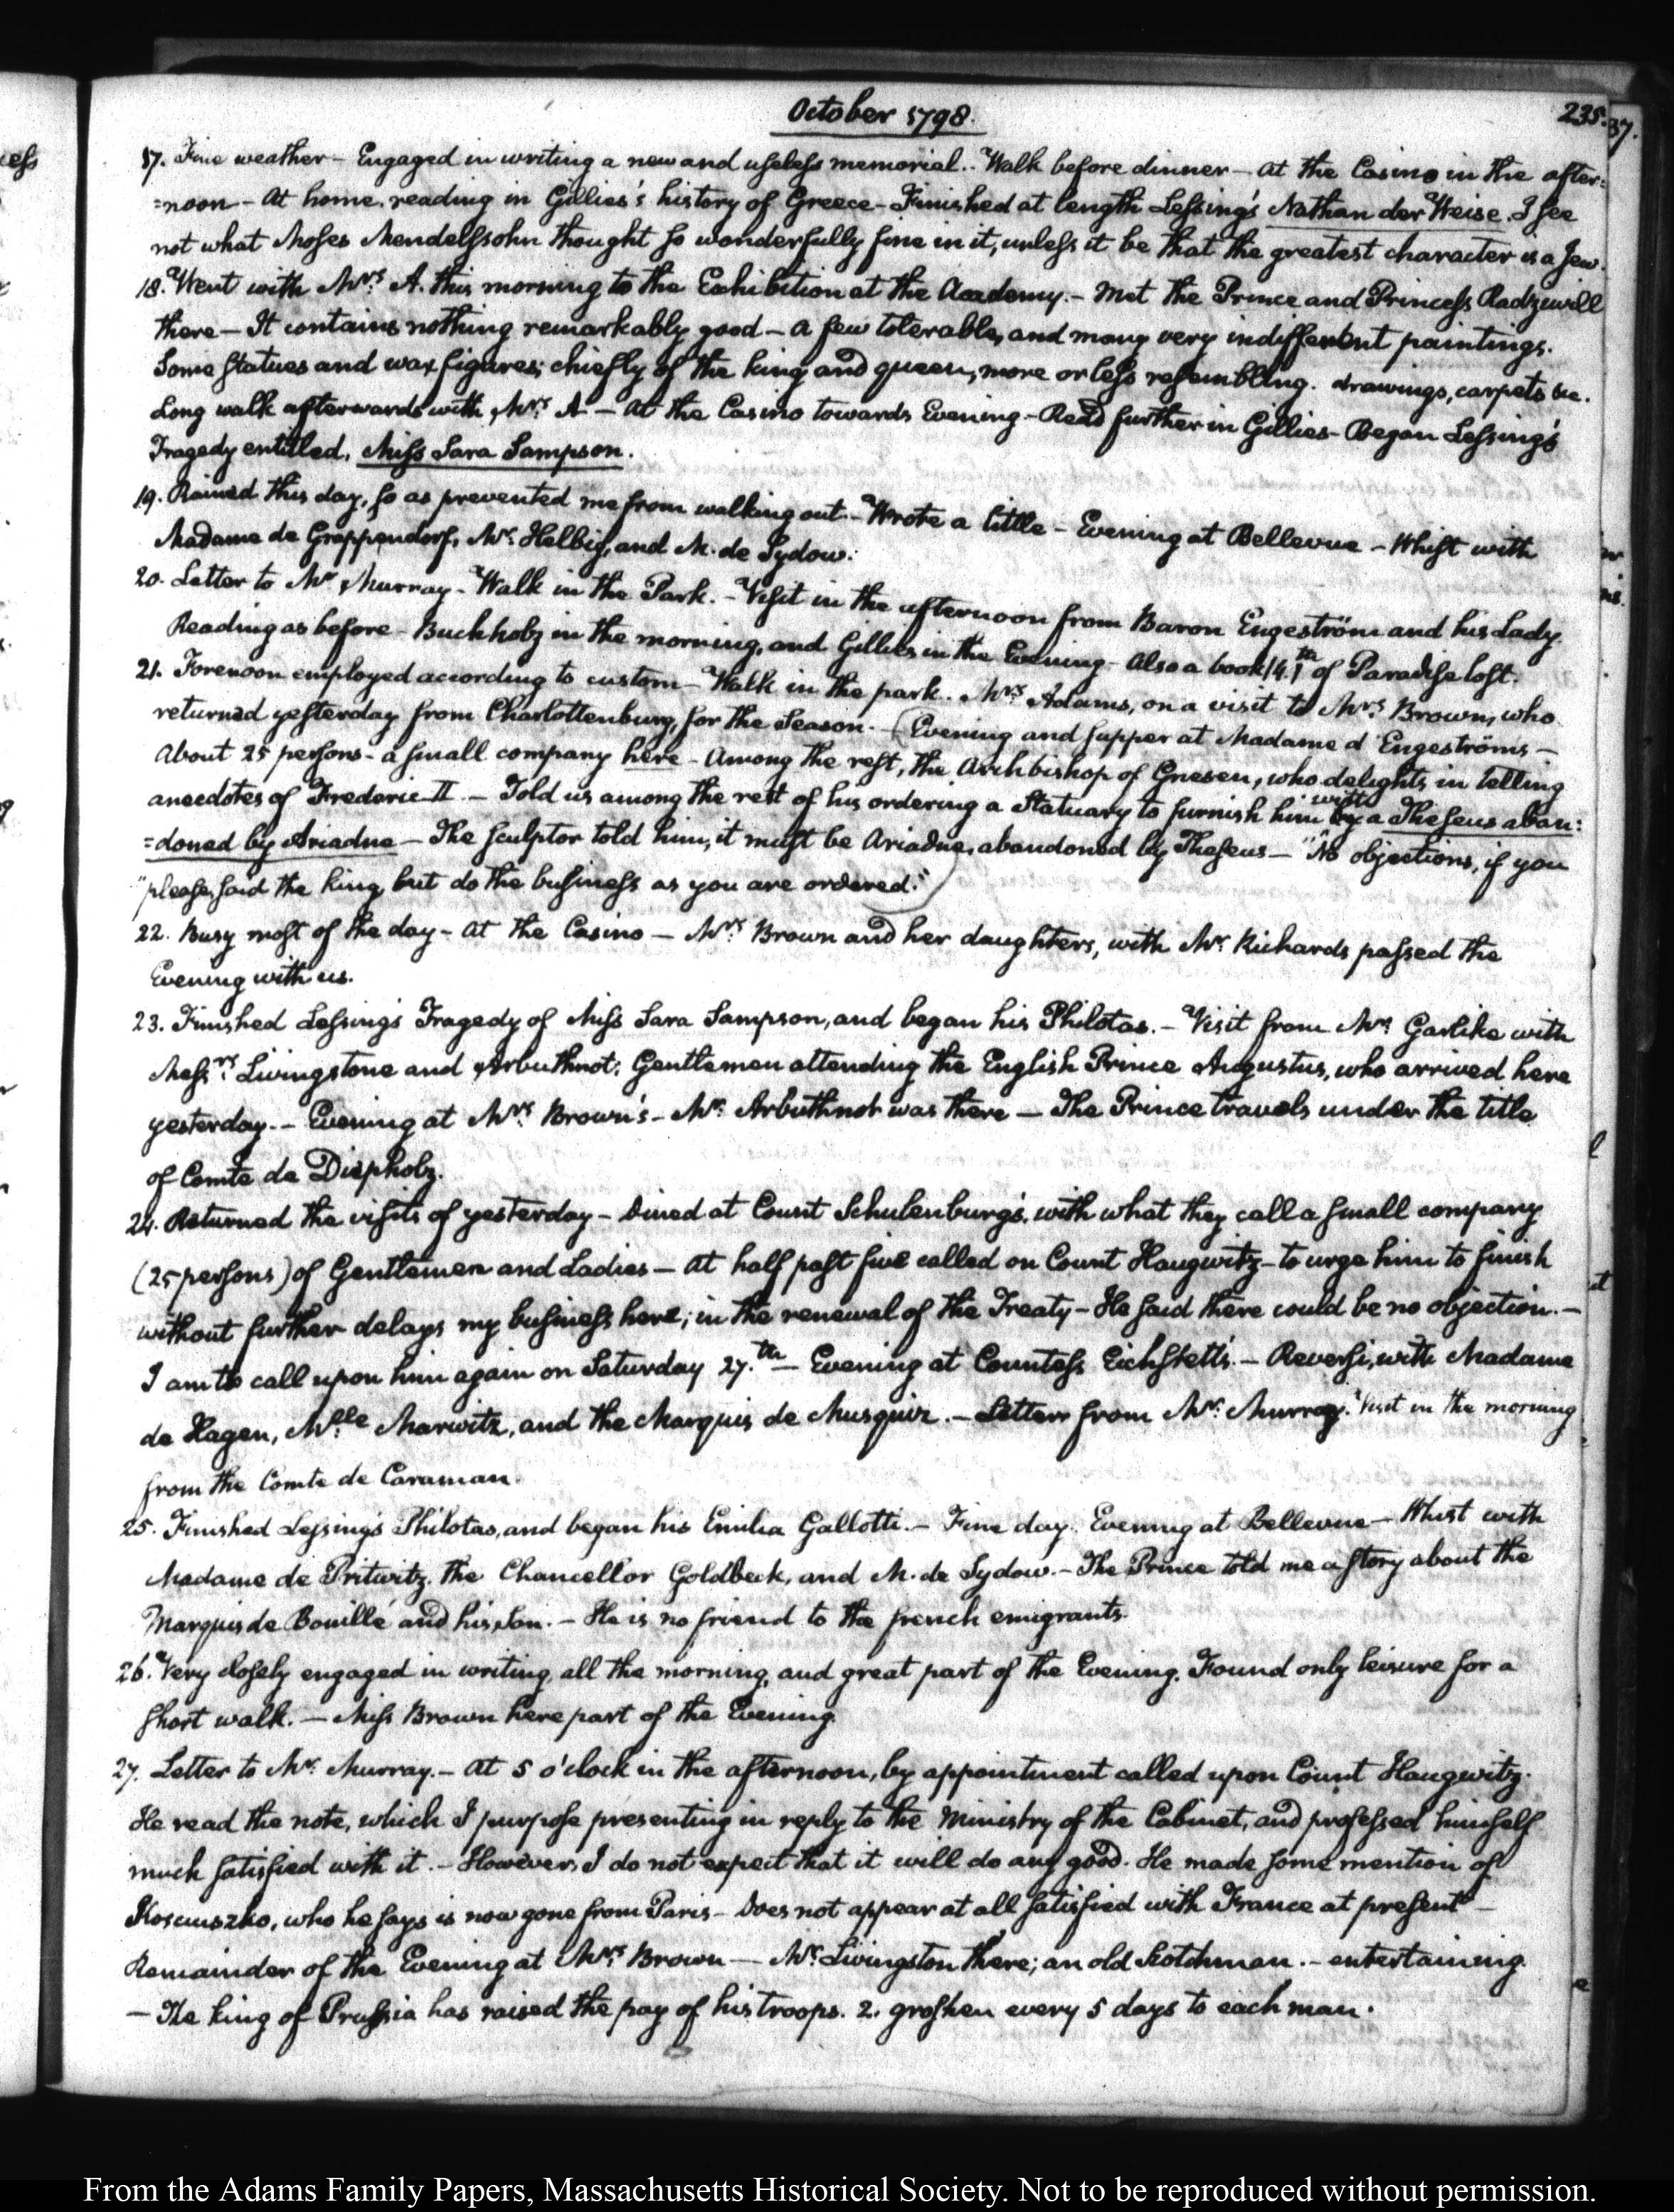 October 1798.
235.
37.
17. Fine weather – Engaged in writing a new and useless memorial.. Walk before dinner – at the Casino in the after:
=noon – At home, reading in Gillies's history of Greece – Finished at length Lessing's Nathan der Weise. I see
not what Moses Mendelssohn thought so wonderfully fine in it, unless it be that the greatest character is a Jew.
18. Went with Mrs. A. this morning to the Exhibition at the Academy. – Met the Prince and Princess Radziwill
there – It contains nothing remarkably good – a few tolerable, and many very indifferent paintings.
Some statues and wax figures; chiefly of the king and queen, more or less resembling. drawings, carpets &c.
Long walk afterwards with Mrs. A – At the Casino towards Evening – Read further in Gillies – Began Lessing's
Tragedy entitled, Miss Sara Sampson.
19. Rained this day, so as prevented me from walking out. – Wrote a little – Evening at Bellevue – Whist with
Madame de Grappendorf, Mr. Helbig, and M. de Sydow.
20. Letter to Mr Murray – Walk in the Park. – Visit in the afternoon from Baron Engeström and his Lady.
Reading as before – Buchholz in the morning, and Gillies in the Evening – Also a book (4.)th of Paradise lost.
21. Forenoon employed according to custom – Walk in the park. Mrs Adams, on a visit to Mrs. Brown, who
returned yesterday from Charlottenburg, for the Season. – (Evening and supper at Madame d'Engeströms –
About 25 persons – a small company here – Among the rest, the Archbishop of Gnesen, who delights in telling
anecdotes of Frederic II. – Told us among the rest of his ordering a Statuary to furnish him with a Theseus aban:
=doned by Ariadne – The sculptor told him, it must be Ariadne, abandoned by Theseus – "No objections, if you
"please, said the king, but do the business as you are ordered.")
22. Busy most of the day – at the Casino – Mrs. Brown and her daughters, with Mr. Richards passed the
Evening with us.
23. Finished Lessing's Tragedy of Miss Sara Sampson, and began his Philotas. – Visit from Mr. Garlike with
Messrs. Livingstone and Arbuthnot; Gentlemen attending the English Prince Augustus, who arrived here
yesterday. – Evening at Mrs. Brown's – Mr. Arbuthnot was there – The Prince travels under the title
of Comte de Diepholz.
24. Returned the visits of yesterday – Dined at Count Schulenburg's, with what they call a small company
(25 persons) of Gentlemen and Ladies – At half past five called on Count Haugwitz – to urge him to finish
without further delays my business here; in the renewal of the Treaty – He said there could be no objection. –
I am to call upon him again on Saturday 27.th – Evening at Countess Eichstett's. – Reversi, with Madame
de Hagen, Mlle. Marwitz, and the Marquis de Musquiz. – Letter from Mr. Murray. Visit in the morning
from the Comte de Caraman.
25. Finished Lessing's Philotas, and began his Emilia Gallotti. – Fine day. Evening at Bellevue – Whist with
Madame de Pritwitz, the Chancellor Goldbeck, and M. de Sydow. – The Prince told me a story about the
Marquis de Bouillé and his son. – He is no friend to the french emigrants.
26. Very closely engaged in writing, all the morning, and great part of the Evening. Found only leisure for a
short walk. – Miss Brown here part of the Evening.
27. Letter to Mr. Murray. – At 5 o'clock in the afternoon, by appointment called upon Count Haugwitz.
He read the note, which I purpose presenting in reply to the Ministry of the Cabinet, and professed himself
much satisfied with it. – However, I do not expect that it will do any good. He made some mention of
Kosciuszko, who he says is now gone from Paris – Does not appear at all satisfied with France at present –
Remainder of the Evening at Mrs. Brown – Mr. Livingston there; an old Scotchman. – entertaining.
– The king of Prussia has raised the pay of his troops. 2. groshen every 5 days to each man.
From the Adams Family Papers, Massachusetts Historical Society. Not to be reproduced without permission.